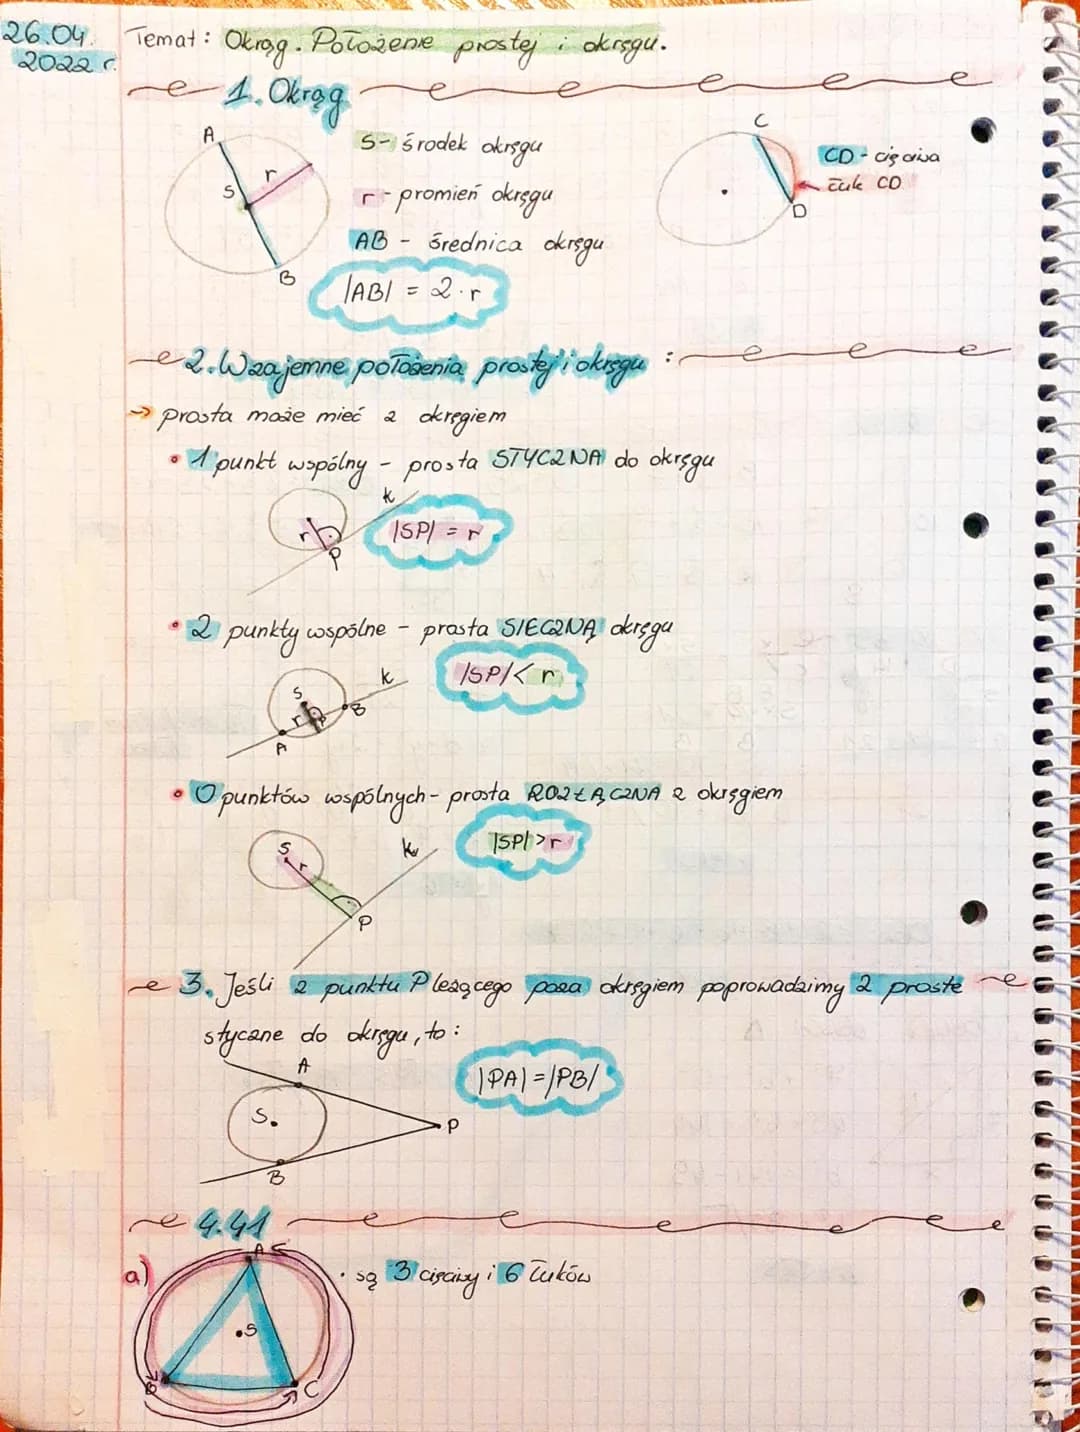 26.04.
2022 r.
Temat: Okrąg. Położenie prostej i okręgu.
1. Okrąg
A
S
r
B
S - środek okręgu
r - promień okręgu
AB - średnica okręgu
|AB| = 2·r
C
D
CD - cięciwa
łuk CD
2. Wzajemne położenia prostej i okręgu :
→ prosta może mieć z okręgiem
• 1 punkt wspólny - prosta STYCZNA do okręgu
k
r
P
|SP| = r
• 2 punkty wspólne - prosta SIECZNĄ okręgu
k
S
r
P
B
A
|SP| < r
• 0 punktów wspólnych - prosta ROZŁĄCZNA z okręgiem
S
r
k
P
|SP| > r
3. Jeśli z punktu P leżącego poza okręgiem poprowadzimy 2 proste
styczne do okręgu, to:
A
S
P
B
|PA| = |PB|
4.41
a)
A
S
B
C
· są 3 cięciwy i 6 łuków